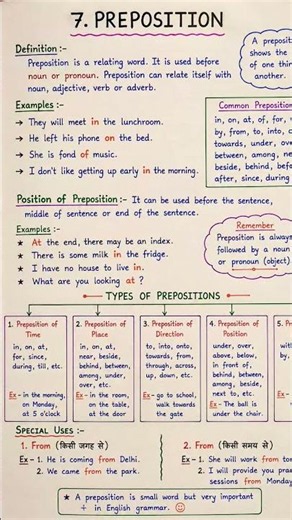 7. PREPOSITION
Definition :-
Preposition is a relating word. It is used before
noun or pronoun. Preposition can relate itself with
noun, adjective, verb or adverb.
A preposit
shows the
of one thin
another.
Examples :-
→ They will meet in the lunchroom.
→ He left his phone on the bed.
→ She is fond of music.
→ I don't like getting up early in the morning.
Common Preposition
in, on, at, of, for,
by, from, to, into,
towards, under, over
between, among, ne
beside, behind, befo
after, since, during
Position of Preposition :- It can be used before the sentence,
middle of sentence or end of the sentence.
Examples :-
★ At the end, there may be an index.
★ There is some milk in the fridge.
★ I have no house to live in.
★ What are you looking at ?
Remember
Preposition is always
followed by a noun
or pronoun (object)
TYPES OF PREPOSITIONS
1. Preposition of
Time
in, on, at,
for, since,
during, till, etc.
Ex - in the morning,
on Monday,
at 5 o'clock
2. Preposition of
Place
in, on, at,
near, beside,
behind, between,
among, under,
over, etc.
Ex - in the room,
on the table,
at the door
3. Preposition of
Direction
to, into, onto,
towards, from,
through, across,
up, down, etc.
Ex - go to school,
walk towards
the gate
4. Preposition of
Position
under, over,
above, below,
in front of,
behind, between,
among, beside,
next to, etc.
Ex - The ball is
under the chair.
5. Pr
with
by,
Ex -
SPECIAL USES -
1. From (किसी जगह से)
Ex - 1. He is coming from Delhi.
2. We came from the park.
2. From (किसी समय से)
Ex - 1. She will work from to
2. I will provide you pra
sessions from Monday
★ A preposition is small word but very important
+ in English grammar.